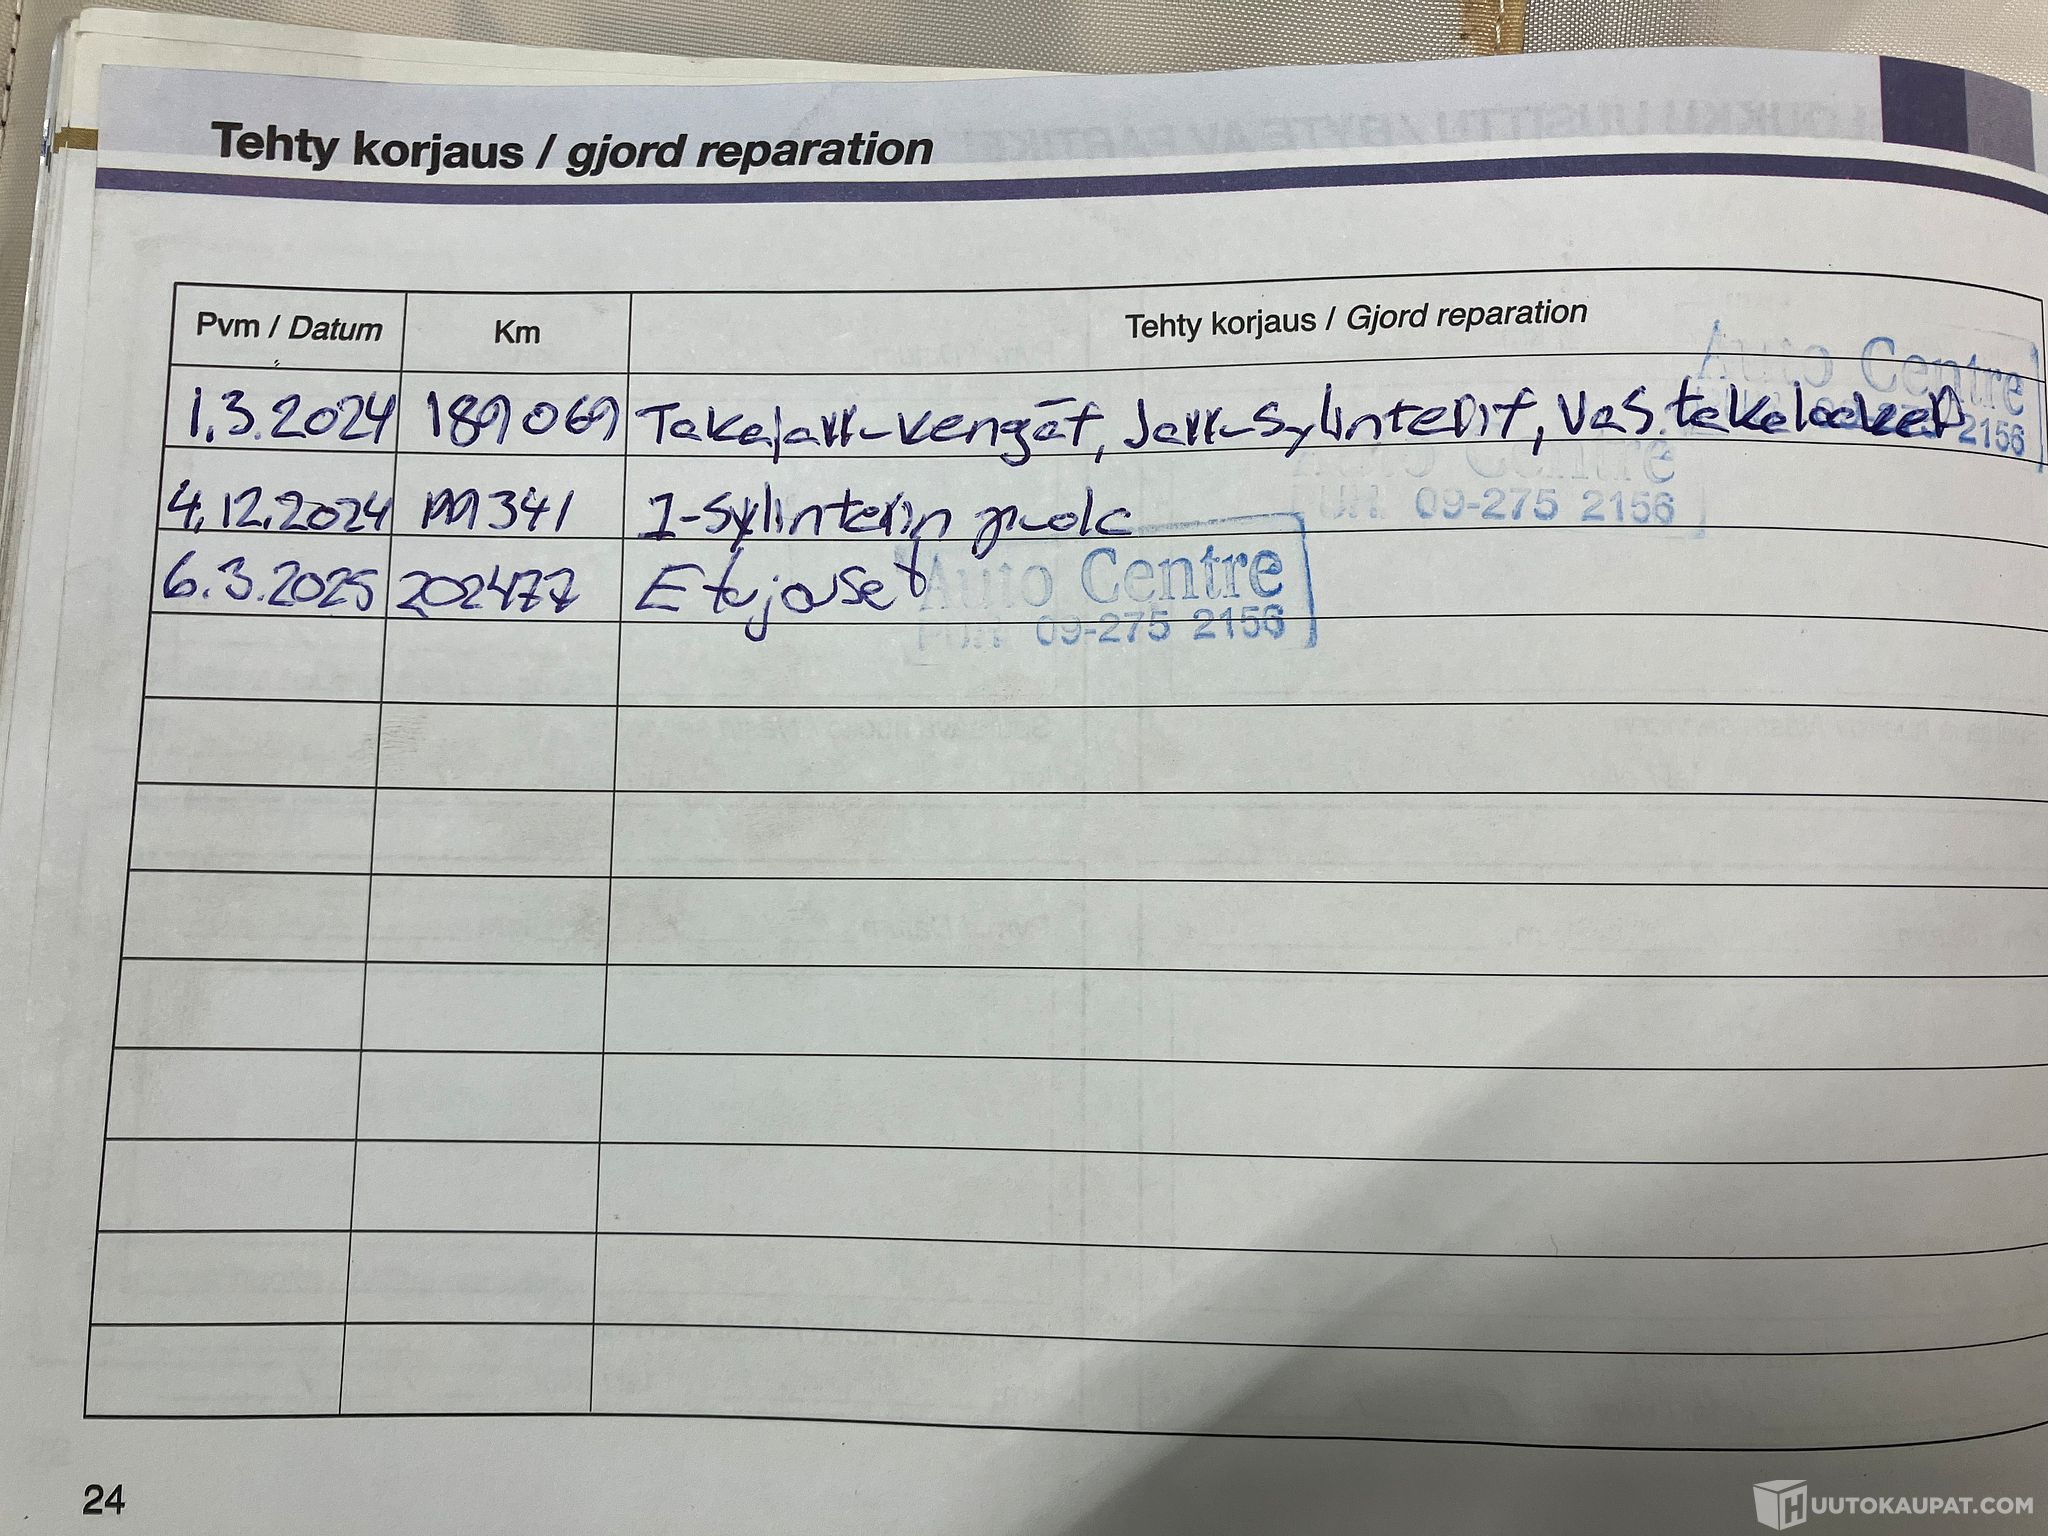 Tehty korjaus / gjord reparation
Pvm / Datum Km Tehty korjaus / Gjord reparation
1.3.2024 189069 Takajarr-kengät, Jarr-sylinterit, Vas takalocker
4.12.2024 199341 1-sylinterin puola
6.3.2025 202477 Etujouset
Auto Centre
09-275 2156
Auto Centre
PUH 09-275 2156
Auto Centre
PUH 09-275 2156
24
HUUTOKAUPAT.COM